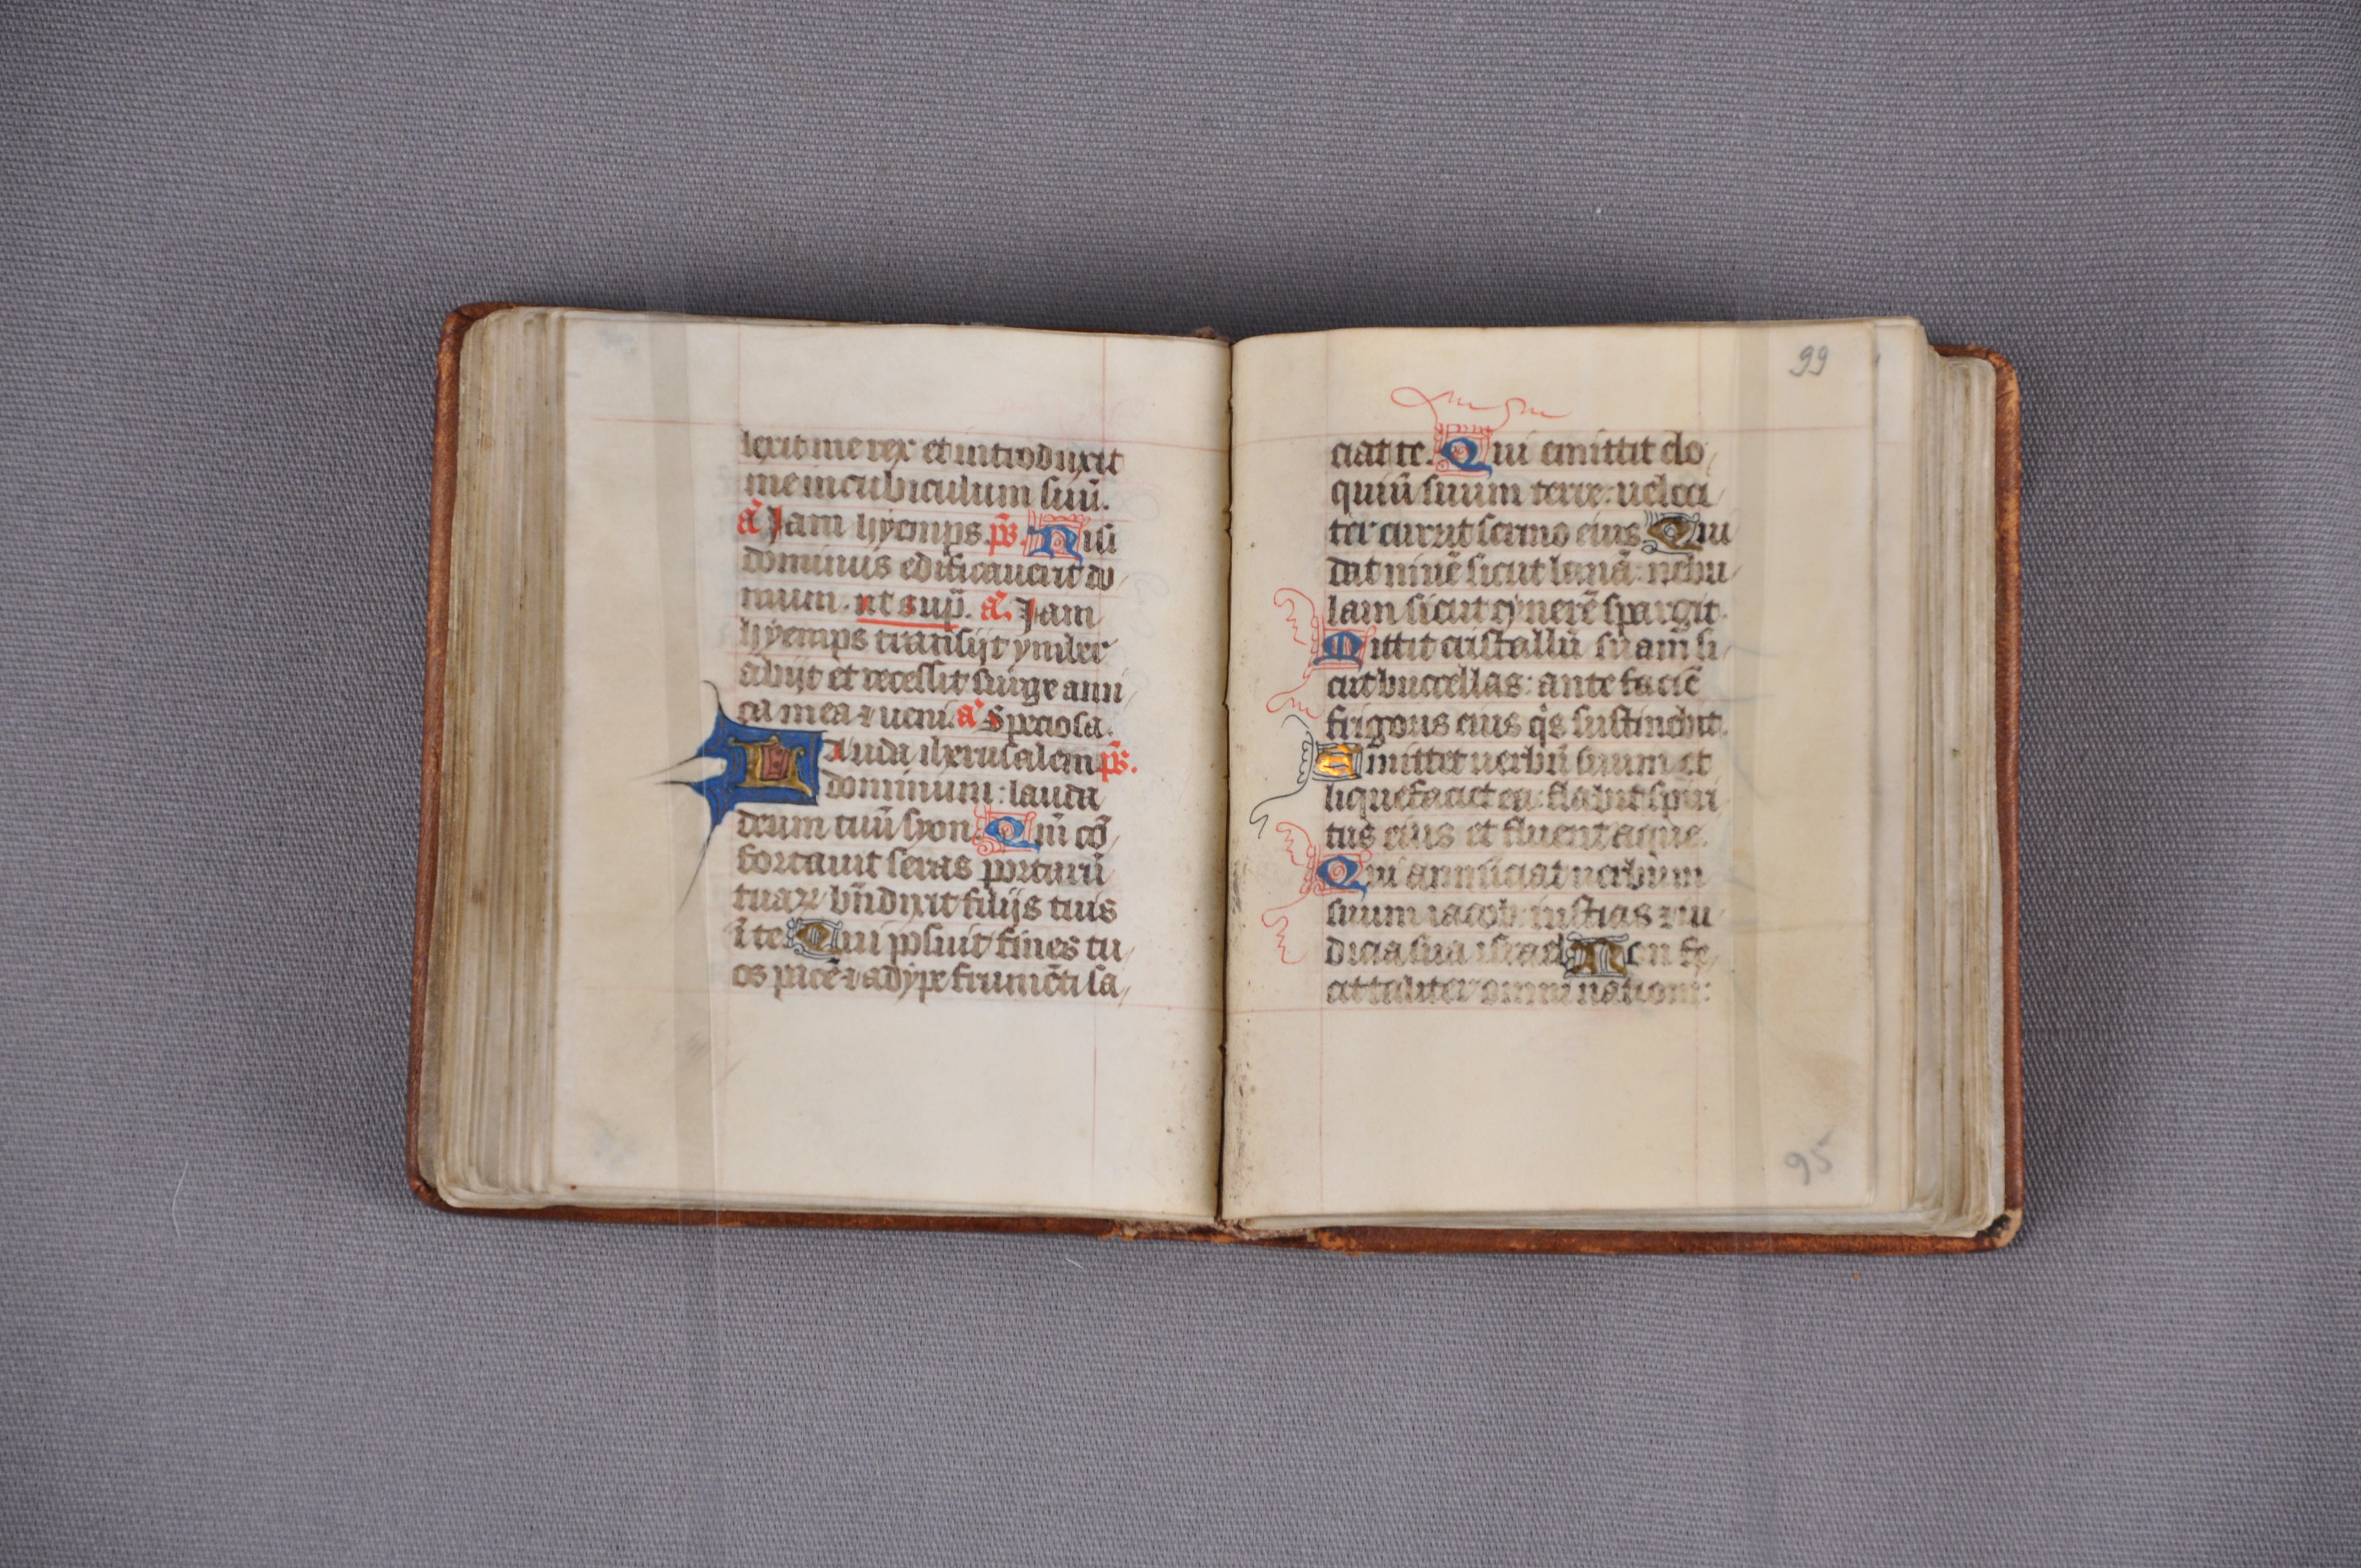 lexit me rex et introduxit
me in cubiculum suū.
a̅ Jam hyemps. ps̅. Nisi
dominus edificauerit do
mum. ut sup̄. a̅. Jam
hyemps transijt ymber
abijt et recessit surge ami
ca mea ⁊ ueni. a̅ Speciosa.
Lauda iherusalem ps̅.
dominum: lauda
deum tuū syon. Qm̄ cō
fortauit seras portarū
tuaꝝ bn̄dixit filijs tuis
ī te. Qui posuit fines tu
os pacē ⁊ adype frumēti sa
99
ciat te. Qui emittit elo
quiū suum terre: veloci
ter currit sermo eius. Qui
dat niuē sicut lanā: nebu
lam sicut cynerē spargit.
Mittit cristallū suam si
cut buccellas: ante faciē
frigoris eius qͥs sustinebit.
Emittet uerbū suum et
liquefaciet ea: flabit spiri
tus eius et fluent aque.
Qui annūciat uerbum
suum iacob: iusticias ⁊ iu
dicia sua israel. Non fe
cit taliter omni nationi:
95